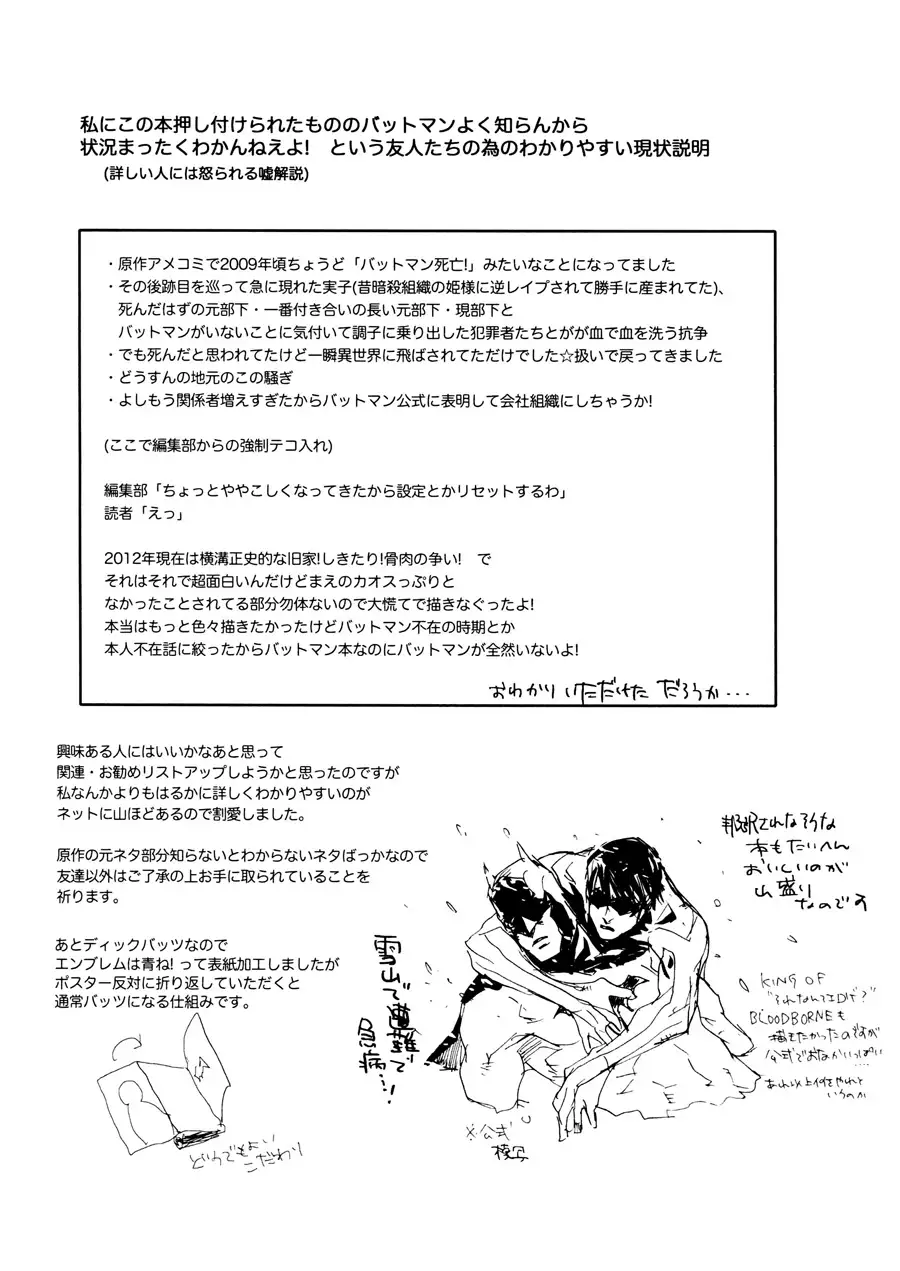 私にこの本押し付けられたもののバットマンよく知らんから
状況まったくわかんねえよ!　という友人たちの為のわかりやすい現状説明
(詳しい人には怒られる嘘解説)
・原作アメコミで2009年頃ちょうど「バットマン死亡!」みたいなことになってました
・その後跡目を巡って急に現れた実子(昔暗殺組織の姫様に逆レイプされて勝手に産まれてた)、
死んだはずの元部下・一番付き合いの長い元部下・現部下と
バットマンがいないことに気付いて調子に乗り出した犯罪者たちとがが血で血を洗う抗争
・でも死んだと思われてたけど一瞬異世界に飛ばされてただけでした☆扱いで戻ってきました
・どうすんの地元のこの騒ぎ
・よしもう関係者増えすぎたからバットマン公式に表明して会社組織にしちゃうか!
(ここで編集部からの強制テコ入れ)
編集部「ちょっとややこしくなってきたから設定とかリセットするわ」
読者「えっ」
2012年現在は横溝正史的な旧家!しきたり!骨肉の争い!　で
それはそれで超面白いんだけどまえのカオスっぷりと
なかったことされてる部分勿体ないので大慌てで描きなぐったよ!
本当はもっと色々描きたかったけどバットマン不在の時期とか
本人不在話に絞ったからバットマン本なのにバットマンが全然いないよ!
おわかりいただけただろうか・・・
興味ある人にはいいかなあと思って
関連・お勧めリストアップしようかと思ったのですが
私なんかよりもはるかに詳しくわかりやすいのが
ネットに山ほどあるので割愛しました。
原作の元ネタ部分知らないとわからないネタばっかなので
友達以外はご了承の上お手に取られていることを
祈ります。
あとディックバッツなので
エンブレムは青ね! って表紙加工しましたが
ポスター反対に折り返していただくと
通常バッツになる仕組みです。
どうでもよい
こだわり
邦訳されなそうな
本もたいへん
おいしいのが
山盛り
なのです
雪山で遭難して
KING OF
"それなんてエロゲ?"
BLOODBORNEも
描きたかったのですが
公式でおなかいっぱい
....
あれ以上何をやれと
いうのか
※公式
模写